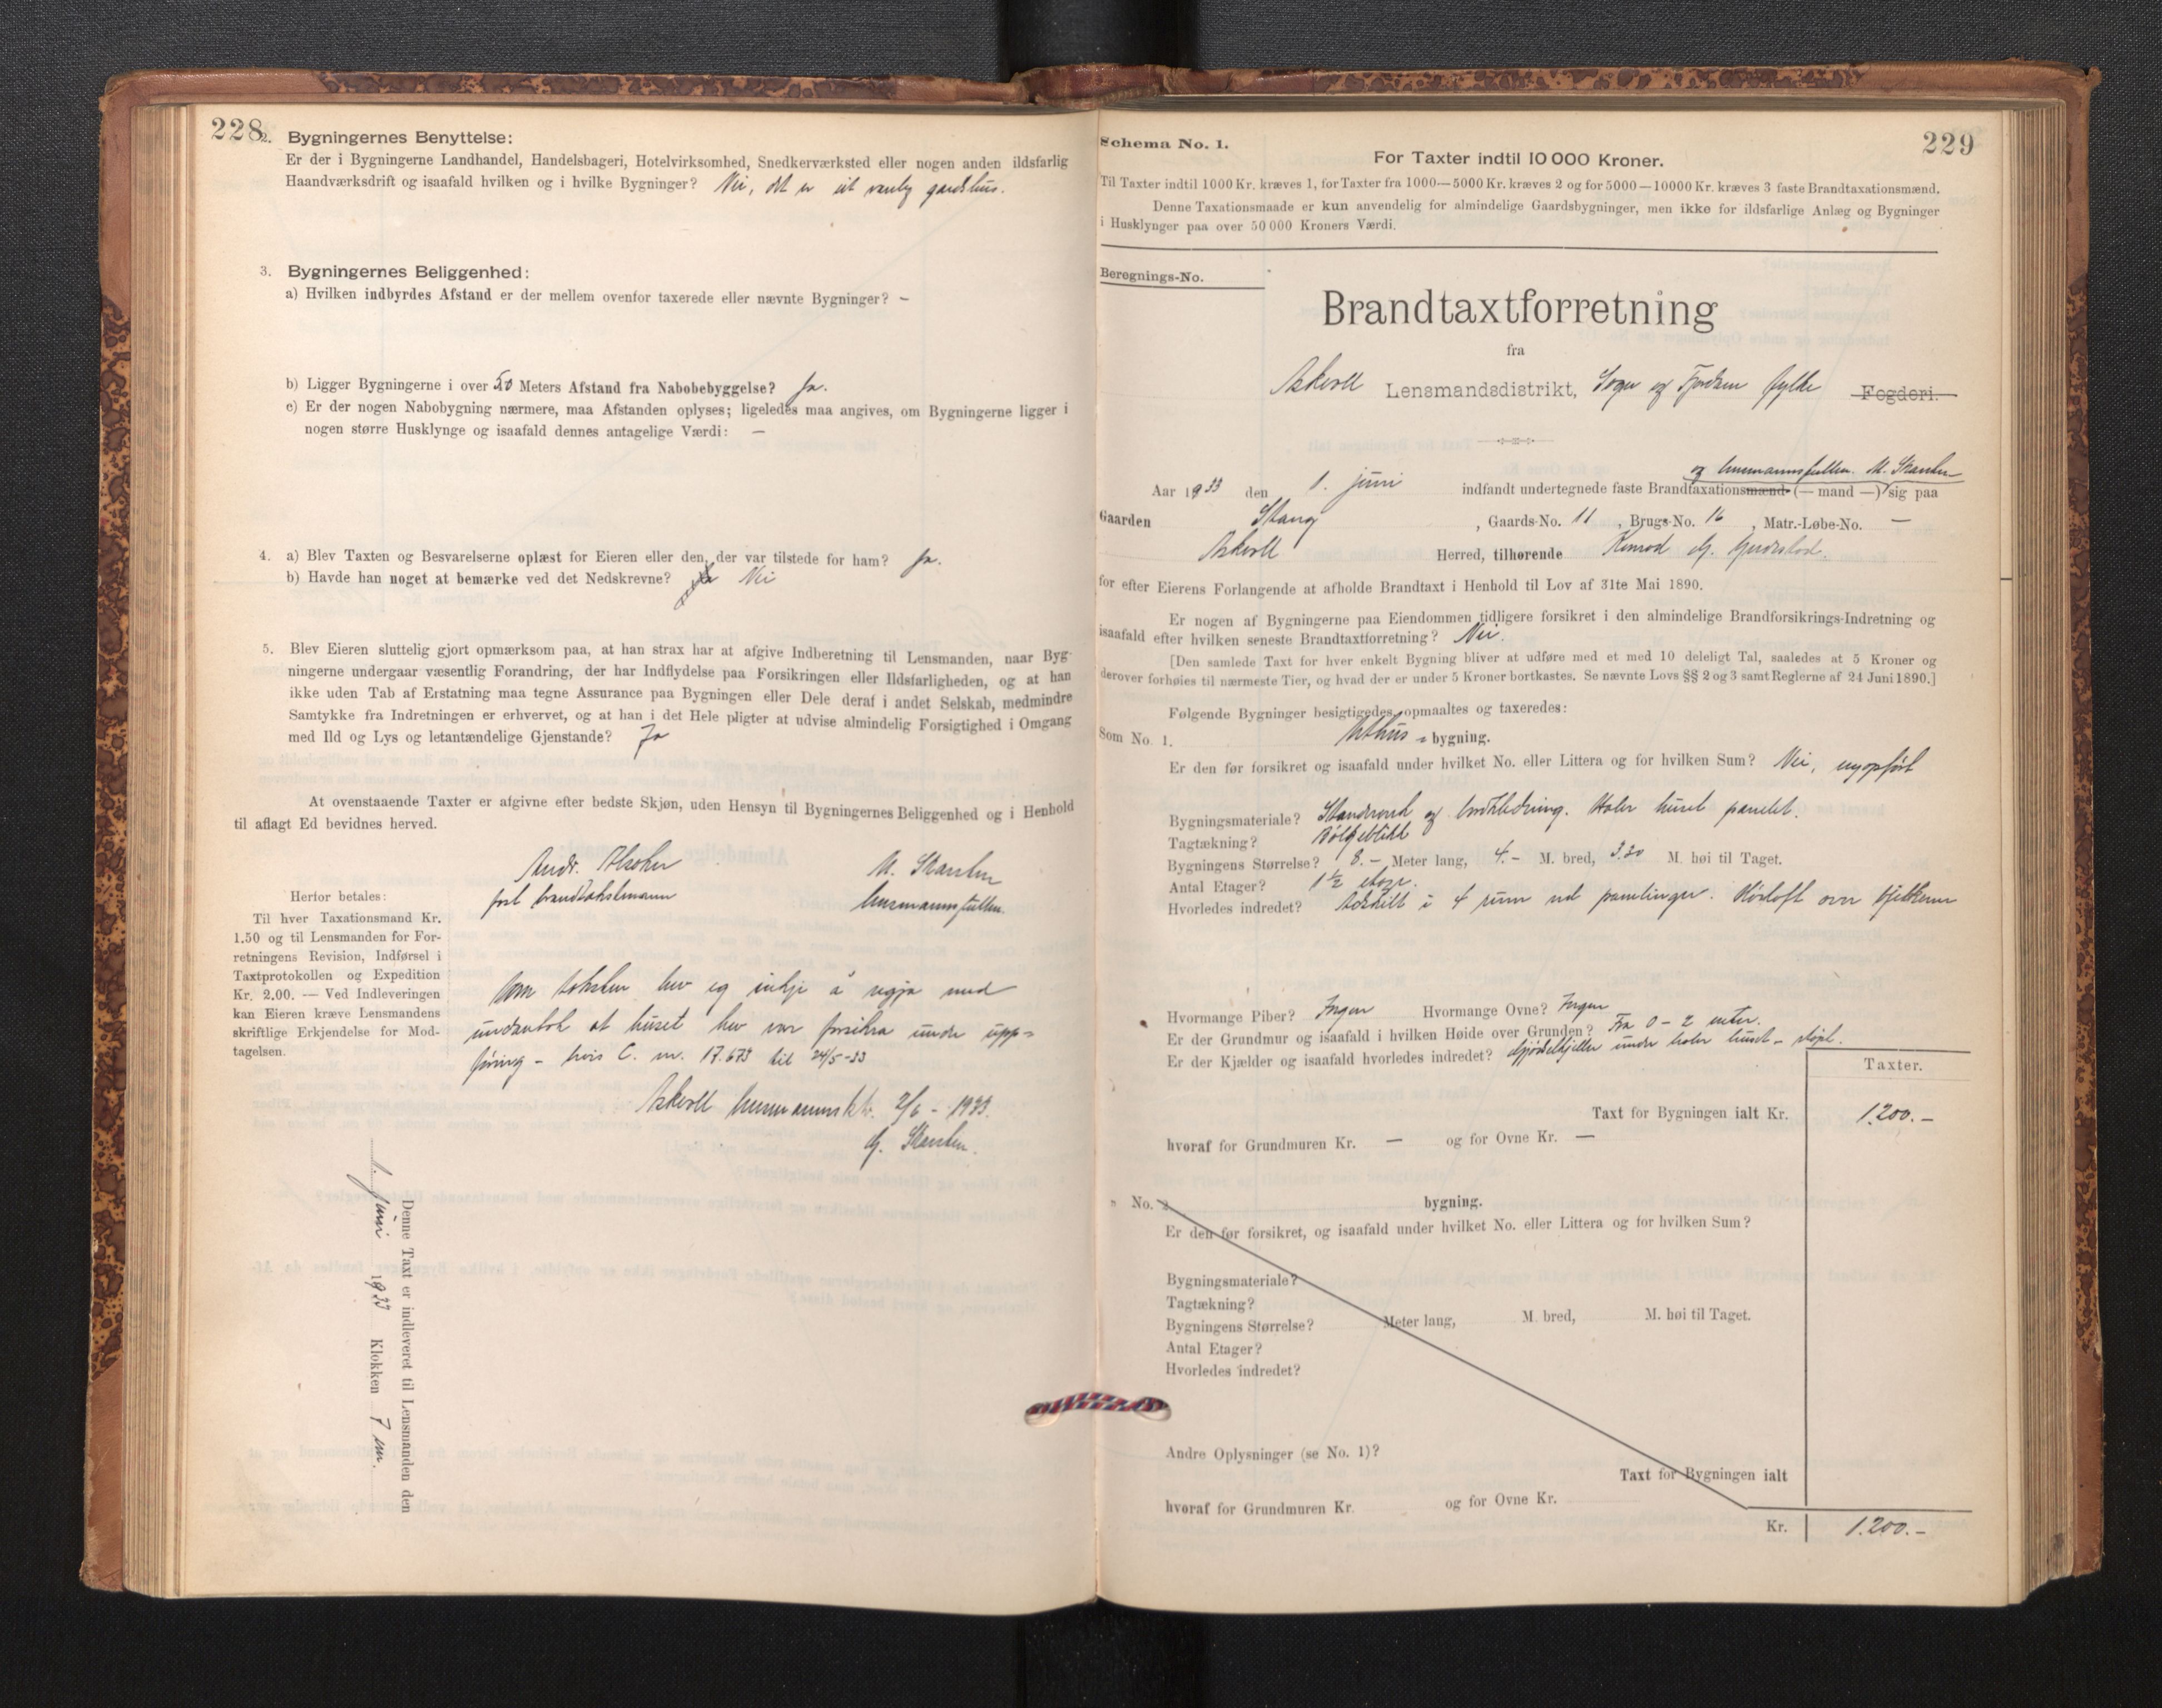 228
2. Bygningernes Benyttelse:
Er der i Bygningerne Landhandel, Handelsbageri, Hotelvirksomhed, Snedkerværksted eller nogen anden ildsfarlig
Haandværksdrift og isaafald hvilken og i hvilke Bygninger? Nei, det er eit vanleg gardshus.
3. Bygningernes Beliggenhed:
a) Hvilken indbyrdes Afstand er der mellem ovenfor taxerede eller nævnte Bygninger? –
b) Ligger Bygningerne i over 50 Meters Afstand fra Nabobebyggelse? Ja.
c) Er der nogen Nabobygning nærmere, maa Afstanden oplyses; ligeledes maa angives, om Bygningerne ligger i
nogen større Husklynge og isaafald dennes antagelige Værdi: –
4. a) Blev Taxten og Besvarelserne oplæst for Eieren eller den, der var tilstede for ham? Ja.
b) Havde han noget at bemærke ved det Nedskrevne? Nei
5. Blev Eieren sluttelig gjort opmærksom paa, at han strax har at afgive Indberetning til Lensmanden, naar Byg-
ningerne undergaar væsentlig Forandring, der har Indflydelse paa Forsikringen eller Ildsfarligheden, og at han
ikke uden Tab af Erstatning maa tegne Assurance paa Bygningen eller Dele deraf i andet Selskab, medmindre
Samtykke fra Indretningen er erhvervet, og at han i det Hele pligter at udvise almindelig Forsigtighed i Omgang
med Ild og Lys og letantændelige Gjenstande? Ja
At ovenstaaende Taxter er afgivne efter bedste Skjøn, uden Hensyn til Bygningernes Beliggenhed og i Henhold
til aflagt Ed bevidnes herved.
Andr. M. Stanken
fast brandtakstmann lensmannsfullm.
Herfor betales:
Til hver Taxationsmand Kr.
1.50 og til Lensmanden for For-
retningens Revision, Indførsel i
Taxtprotokollen og Expedition
Kr. 2.00. — Ved Indleveringen
kan Eieren kræve Lensmandens
skriftlige Erkjendelse for Mod-
tagelsen.
Um taksten hev eg inkje å segja med
undantak at huset hev vore forsikra under upp-
føring – pris C. nr. 17.673 til 24/5-33
Askvoll lensmannsktr. 2/6 - 1933.
Denne Taxt er indleveret til Lensmanden den
1. juni 1933 Klokken 7 em.
229
Schema No. 1.
For Taxter indtil 10 000 Kroner.
Til Taxter indtil 1000 Kr. kræves 1, for Taxter fra 1000—5000 Kr. kræves 2 og for 5000—10000 Kr. kræves 3 faste Brandtaxationsmænd.
Denne Taxationsmaade er kun anvendelig for almindelige Gaardsbygninger, men ikke for ildsfarlige Anlæg og Bygninger
i Husklynger paa over 50 000 Kroners Værdi.
Beregnings-No.
Brandtaxtforretning
fra
Askvoll Lensmandsdistrikt, Sogn og Fjordane fylke Fogderi.
og lensmannsfullm. M. Stanken
Aar 1933 den 1. juni indfandt undertegnede faste Brandtaxationsmænd (— mand —) sig paa
Gaarden Stang, Gaards-No. 11, Brugs-No. 16, Matr.-Løbe-No. –
Askvoll Herred, tilhørende Konrad
for efter Eierens Forlangende at afholde Brandtaxt i Henhold til Lov af 31te Mai 1890.
Er nogen af Bygningerne paa Eiendommen tidligere forsikret i den almindelige Brandforsikrings-Indretning og
isaafald efter hvilken seneste Brandtaxtforretning? Nei.
[Den samlede Taxt for hver enkelt Bygning bliver at udføre med et med 10 deleligt Tal, saaledes at 5 Kroner og
derover forhøies til nærmeste Tier, og hvad der er under 5 Kroner bortkastes. Se nævnte Lovs §§ 2 og 3 samt Reglerne af 24 Juni 1890.]
Følgende Bygninger besigtigedes, opmaaltes og taxeredes:
Som No. 1. Uthus- bygning.
Er den før forsikret og isaafald under hvilket No. eller Littera og for hvilken Sum? Nei, nyopført
Bygningsmateriale? og bordkledning. Heile huset panelet.
Tagtækning? Bølgeblikk
Bygningens Størrelse? 8.- Meter lang, 4.- M. bred, 3.30 M. høi til Taget.
Antal Etager? 1 ½ etage.
Hvorledes indredet? Adskilt i 4 rum ved panelinger. Høiloft over
Hvormange Piber? Ingen Hvormange Ovne? Ingen
Er der Grundmur og isaafald i hvilken Høide over Grunden? Fra 0 - 2 meter.
Er der Kjælder og isaafald hvorledes indredet? Gjødselkjeller under heile huset - støpt.
Taxter.
Taxt for Bygningen ialt Kr. 1200.-
hvoraf for Grundmuren Kr. – og for Ovne Kr. –
" No. 2 bygning.
Er den før forsikret, og isaafald under hvilket No. eller Littera og for hvilken Sum?
Bygningsmateriale?
Tagtækning?
Bygningens Størrelse? Meter lang, M. bred, M. høi til Taget.
Antal Etager?
Hvorledes indredet?
Andre Oplysninger (se No. 1)?
Taxt for Bygningen ialt
hvoraf for Grundmuren Kr. og for Ovne Kr.
Kr. 1.200.-